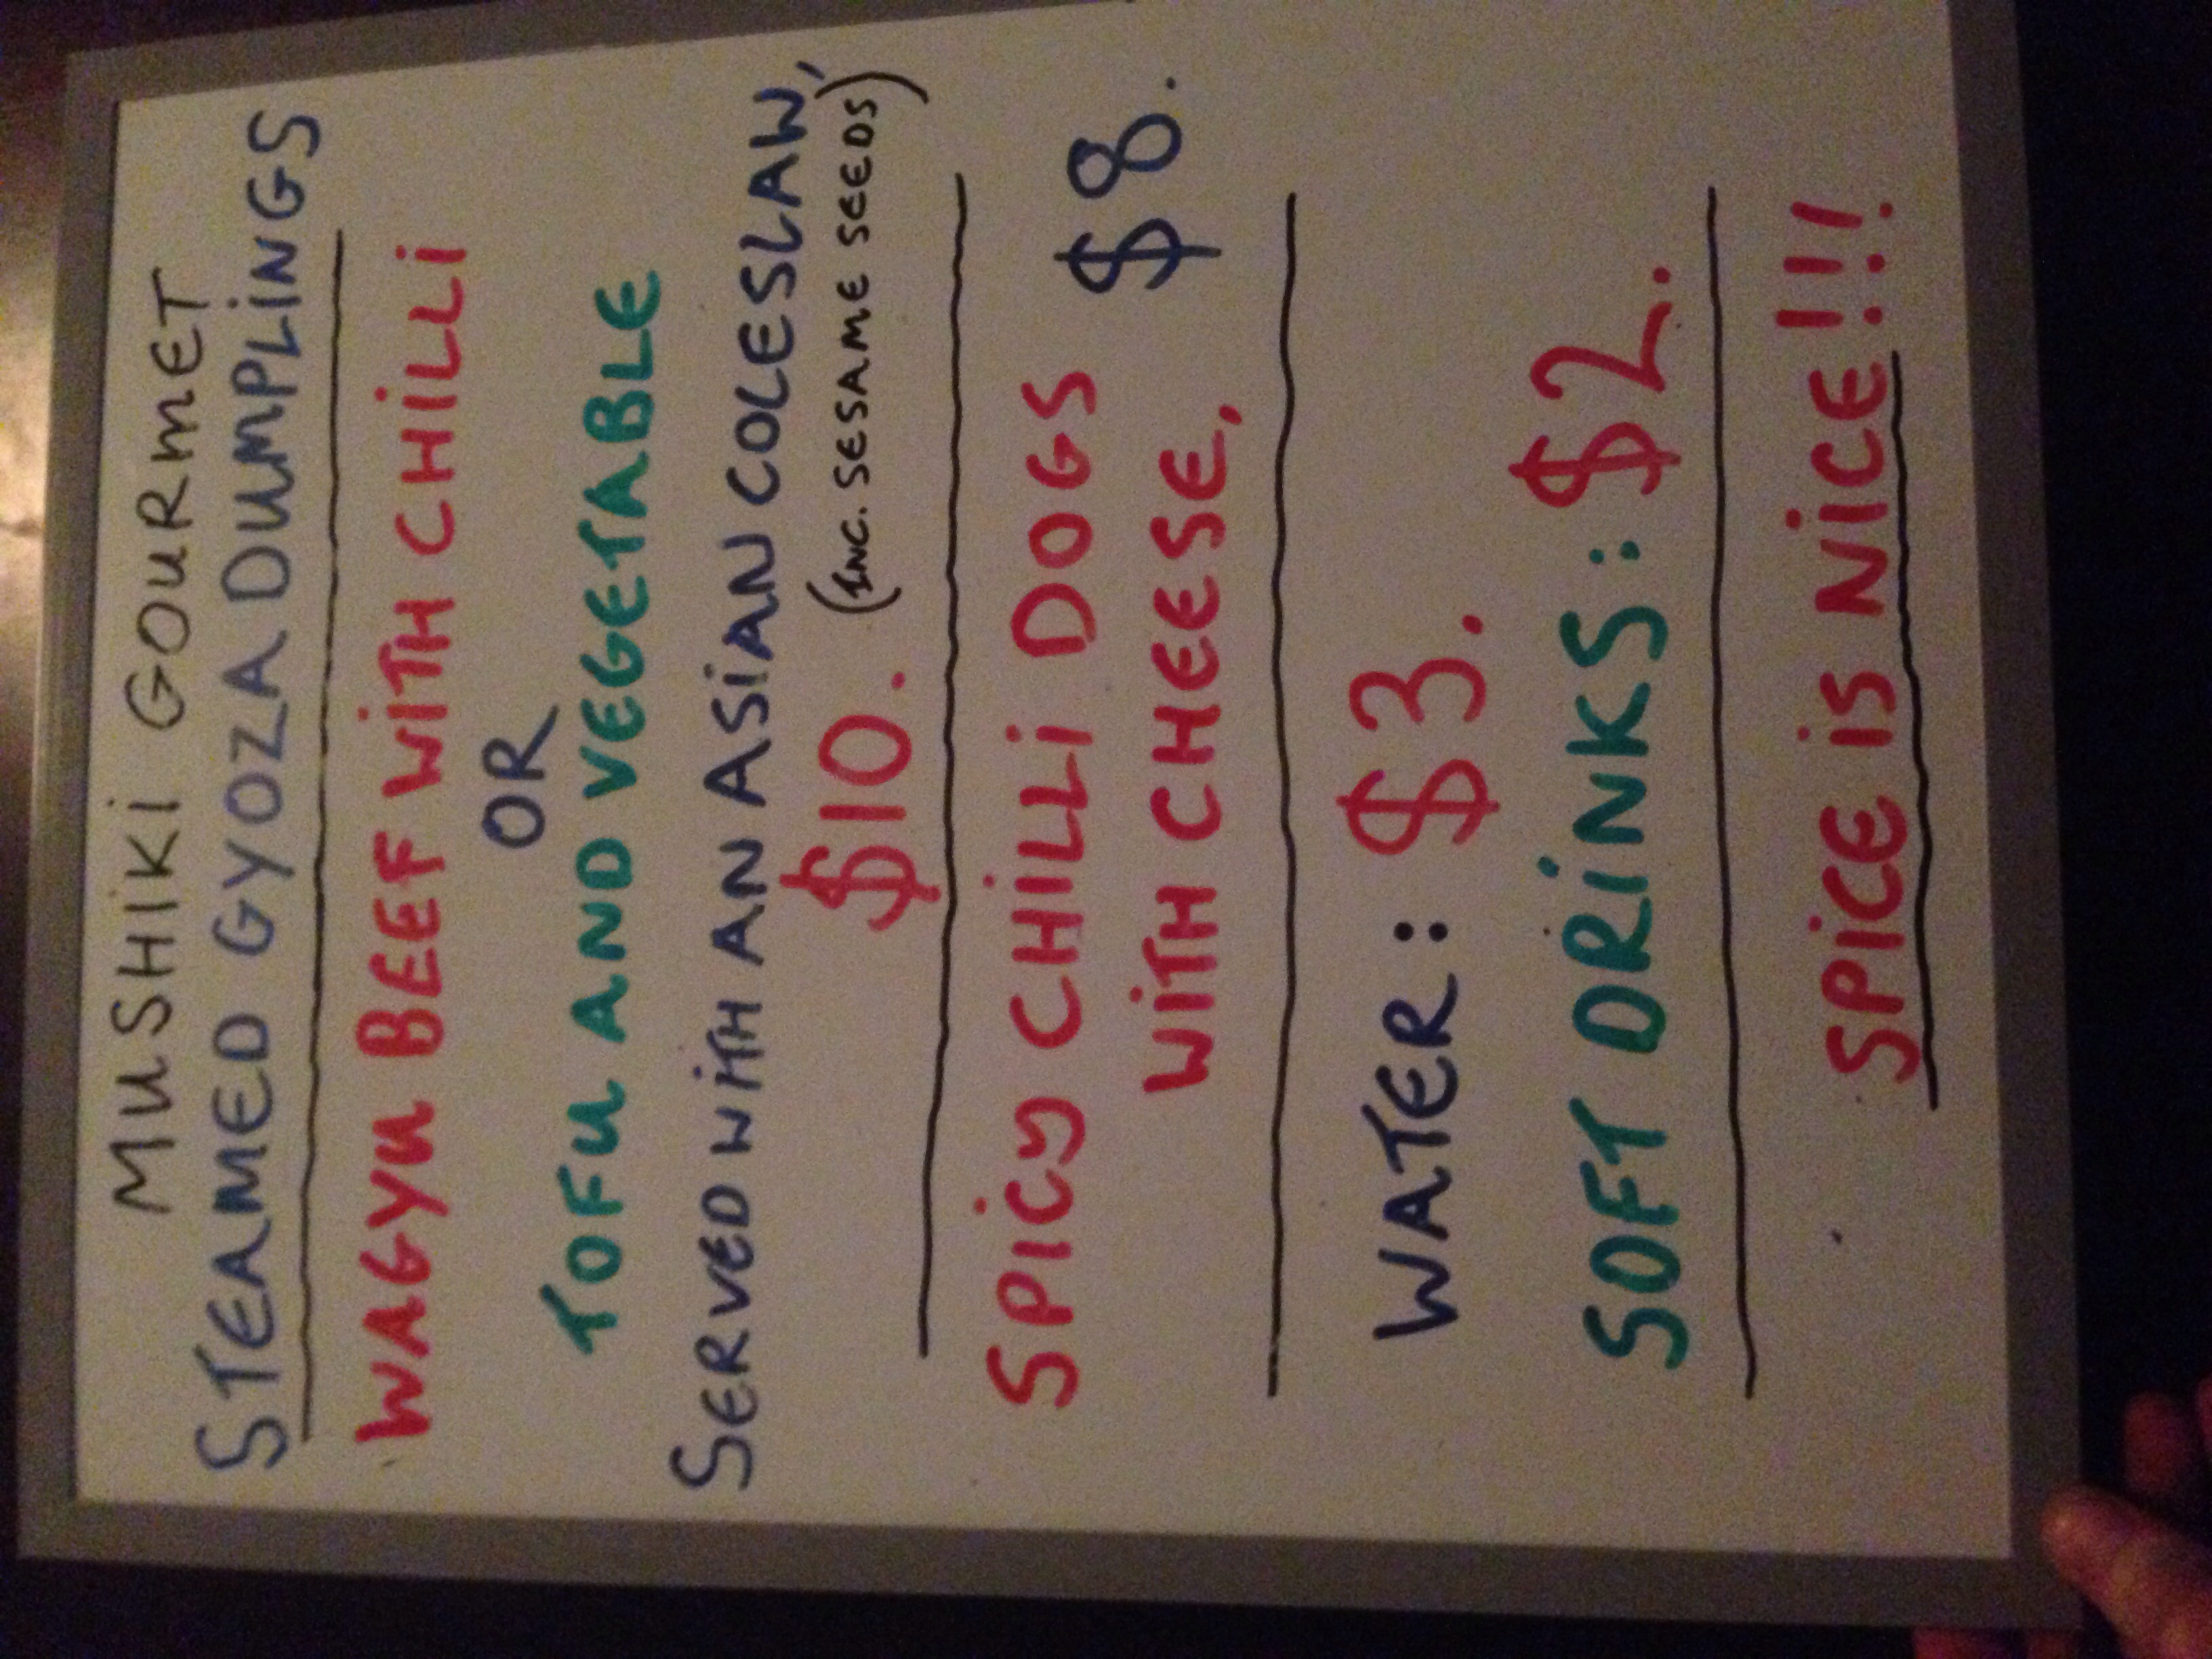 MUSHIKI GOURMET
STEAMED GYOZA DUMPLINGS
WAGYU BEEF WITH CHILLI
OR
TOFU AND VEGETABLE
SERVED WITH AN ASIAN COLESLAW,
$10. (INC. SESAME SEEDS)
SPICY CHILLI DOGS
WITH CHEESE. $8.
WATER: $3.
SOFT DRINKS: $2.
SPICE IS NICE!!!